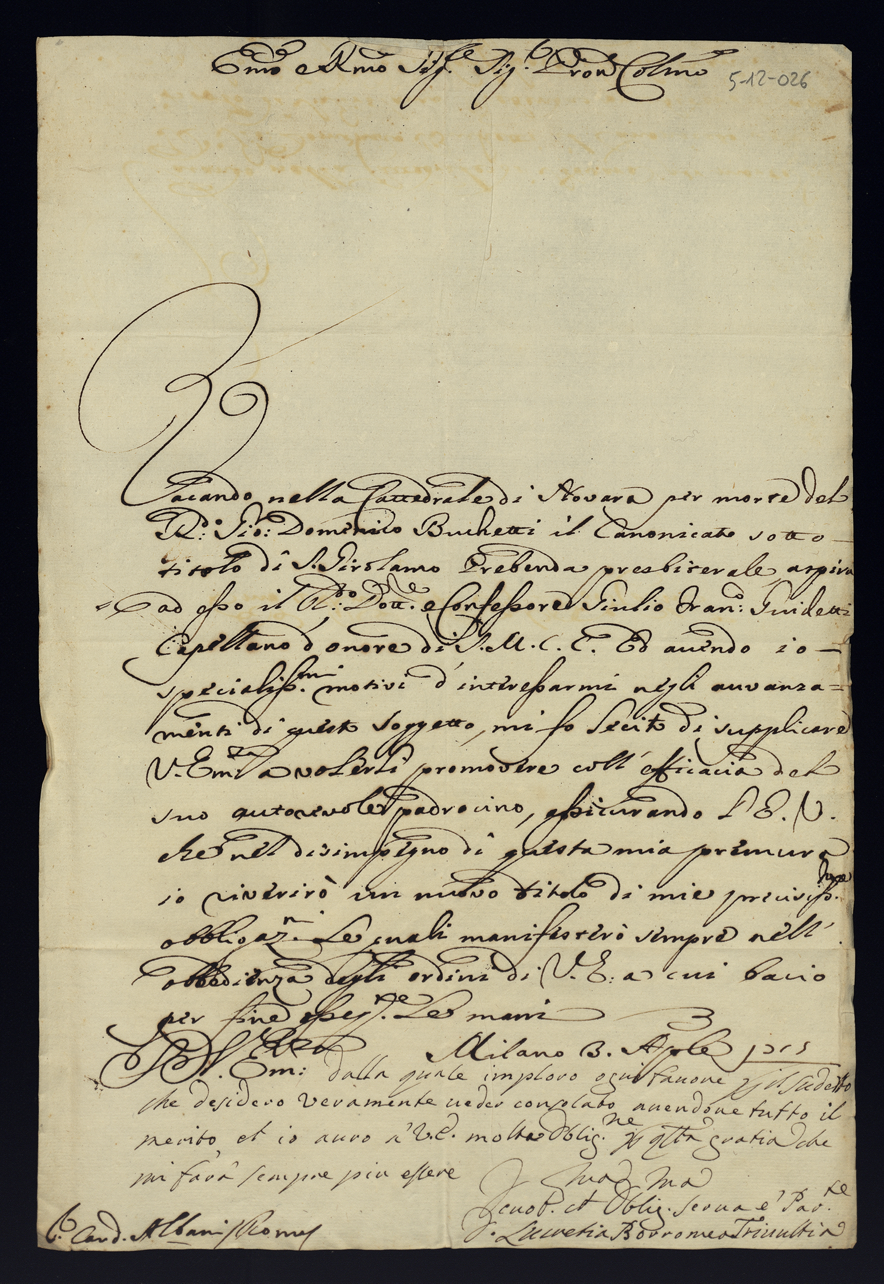 Emo e Rmo Sigre Sigr Pron Colmo
5-12-026
Vacando nella Cattedrale di Novara per morte del
R.do Gio: Domenico Buchetti il Canonicato sotto
titolo di S. Girolamo Prebenda presbiterale, aspira
ad esso il Dott.re e Confessore Giulio Fran.co Guidetti
Capellano d'onore di S. M. C. C. Ed avendo io
specialiss.mi motivi d'interessarmi negli auvanza=
menti di questo soggetto, mi fo lecito di supplicare
V. Em.za a volerlo promovere coll'efficacia del
suo autorevole padrocino, assicurando l'E. V.
che nel disimpegno di questa mia premura
io riverirò un nuovo titolo di mie precisiss.
obbligaz.ni Le quali manifesterò sempre nell'
obbedienza degli ordini di V. E. a cui bacio
per fine Le mani
Di V. Em.za Milano 3. Aple 1715
dalla quale imploro ogni fauore p il sudetto
che desidero veramente ueder consolato auendone tutto il
merito, et io auro a V. E. molta Oblig.ne p qsta gratia che
mi farà sempre piu essere
S.r Card. Albani Roma
Deuot. et Oblig. serua e Par.te
Lucretia Borromea Triuultia